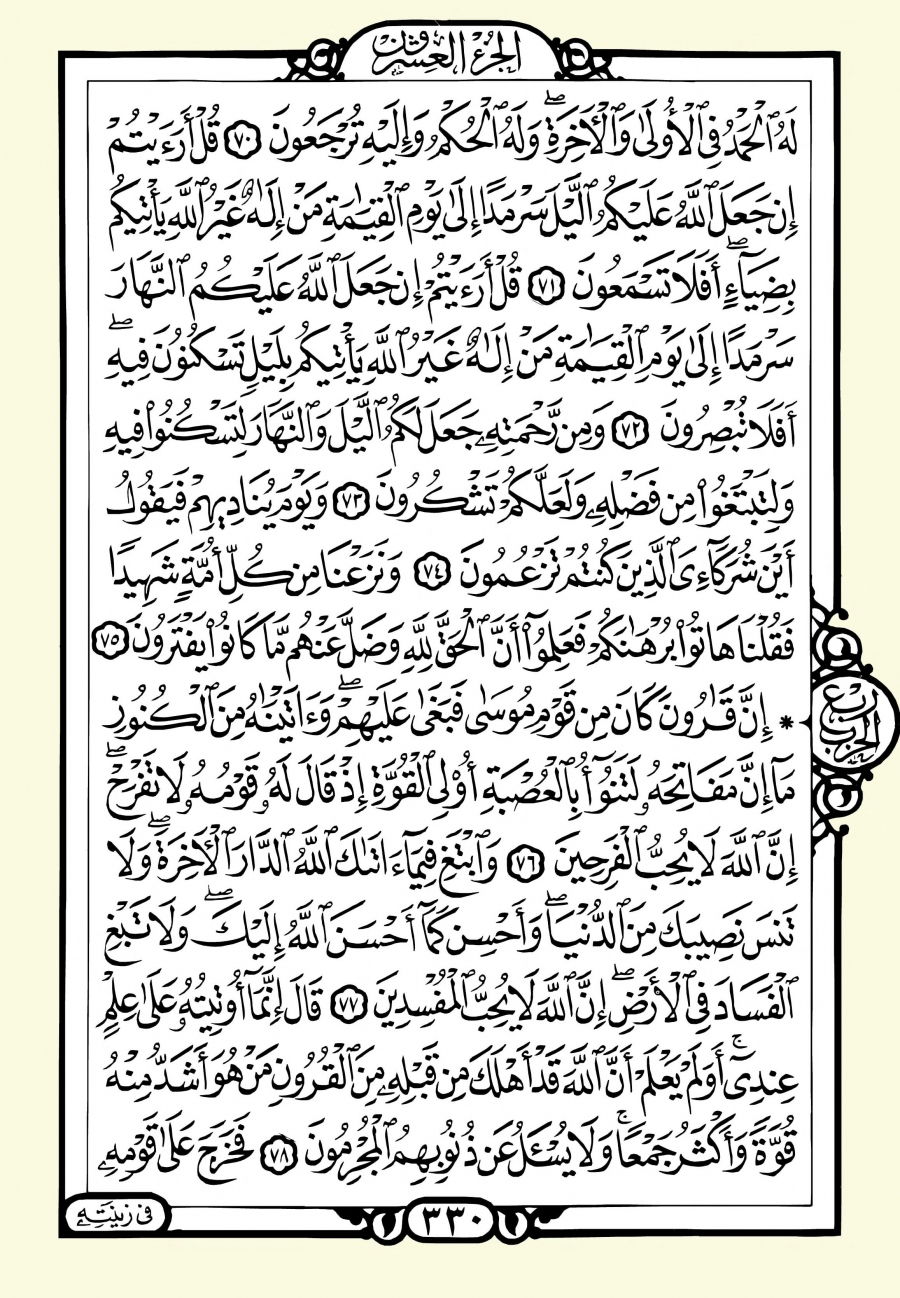 الجزء العشرون
لَهُ ٱلْحَمْدُ فِي ٱلْأُولَىٰ وَٱلْأَخِرَةِۖ وَلَهُ ٱلْحُكْمُ وَإِلَيْهِ تُرْجَعُونَ ٧٠ قُلْ أَرَءَيْتُمْ
إِن جَعَلَ ٱللَّهُ عَلَيْكُمُ ٱلَّيْلَ سَرْمَدًا إِلَىٰ يَوْمِ ٱلْقِيَٰمَةِ مَنْ إِلَٰهٌ غَيْرُ ٱللَّهِ يَأْتِيكُم
بِضِيَآءٍۖ أَفَلَا تَسْمَعُونَ ٧١ قُلْ أَرَءَيْتُمْ إِن جَعَلَ ٱللَّهُ عَلَيْكُمُ ٱلنَّهَارَ
سَرْمَدًا إِلَىٰ يَوْمِ ٱلْقِيَٰمَةِ مَنْ إِلَٰهٌ غَيْرُ ٱللَّهِ يَأْتِيكُم بِلَيْلٍ تَسْكُنُونَ فِيهِۖ
أَفَلَا تُبْصِرُونَ ٧٢ وَمِن رَّحْمَتِهِۦ جَعَلَ لَكُمُ ٱلَّيْلَ وَٱلنَّهَارَ لِتَسْكُنُوا۟ فِيهِ
وَلِتَبْتَغُوا۟ مِن فَضْلِهِۦ وَلَعَلَّكُمْ تَشْكُرُونَ ٧٣ وَيَوْمَ يُنَادِيهِمْ فَيَقُولُ
أَيْنَ شُرَكَآءِىَ ٱلَّذِينَ كُنتُمْ تَزْعُمُونَ ٧٤ وَنَزَعْنَا مِن كُلِّ أُمَّةٍ شَهِيدًا
فَقُلْنَا هَاتُوا۟ بُرْهَٰنَكُمْ فَعَلِمُوٓا۟ أَنَّ ٱلْحَقَّ لِلَّهِ وَضَلَّ عَنْهُم مَّا كَانُوا۟ يَفْتَرُونَ ٧٥
* إِنَّ قَٰرُونَ كَانَ مِن قَوْمِ مُوسَىٰ فَبَغَىٰ عَلَيْهِمْۖ وَءَاتَيْنَٰهُ مِنَ ٱلْكُنُوزِ
مَآ إِنَّ مَفَاتِحَهُۥ لَتَنُوٓأُ بِٱلْعُصْبَةِ أُو۟لِى ٱلْقُوَّةِ إِذْ قَالَ لَهُۥ قَوْمُهُۥ لَا تَفْرَحْۖ
إِنَّ ٱللَّهَ لَا يُحِبُّ ٱلْفَرِحِينَ ٧٦ وَٱبْتَغِ فِيمَآ ءَاتَىٰكَ ٱللَّهُ ٱلدَّارَ ٱلْأَخِرَةَۖ وَلَا
تَنسَ نَصِيبَكَ مِنَ ٱلدُّنْيَاۖ وَأَحْسِن كَمَآ أَحْسَنَ ٱللَّهُ إِلَيْكَۖ وَلَا تَبْغِ
ٱلْفَسَادَ فِى ٱلْأَرْضِۖ إِنَّ ٱللَّهَ لَا يُحِبُّ ٱلْمُفْسِدِينَ ٧٧ قَالَ إِنَّمَآ أُوتِيتُهُۥ عَلَىٰ عِلْمٍ
عِندِىٓۚ أَوَلَمْ يَعْلَمْ أَنَّ ٱللَّهَ قَدْ أَهْلَكَ مِن قَبْلِهِۦ مِنَ ٱلْقُرُونِ مَنْ هُوَ أَشَدُّ مِنْهُ
قُوَّةً وَأَكْثَرُ جَمْعًاۚ وَلَا يُسْـَٔلُ عَن ذُنُوبِهِمُ ٱلْمُجْرِمُونَ ٧٨ فَخَرَجَ عَلَىٰ قَوْمِهِۦ
ربع الحزب
٣٣٠
فى زينته